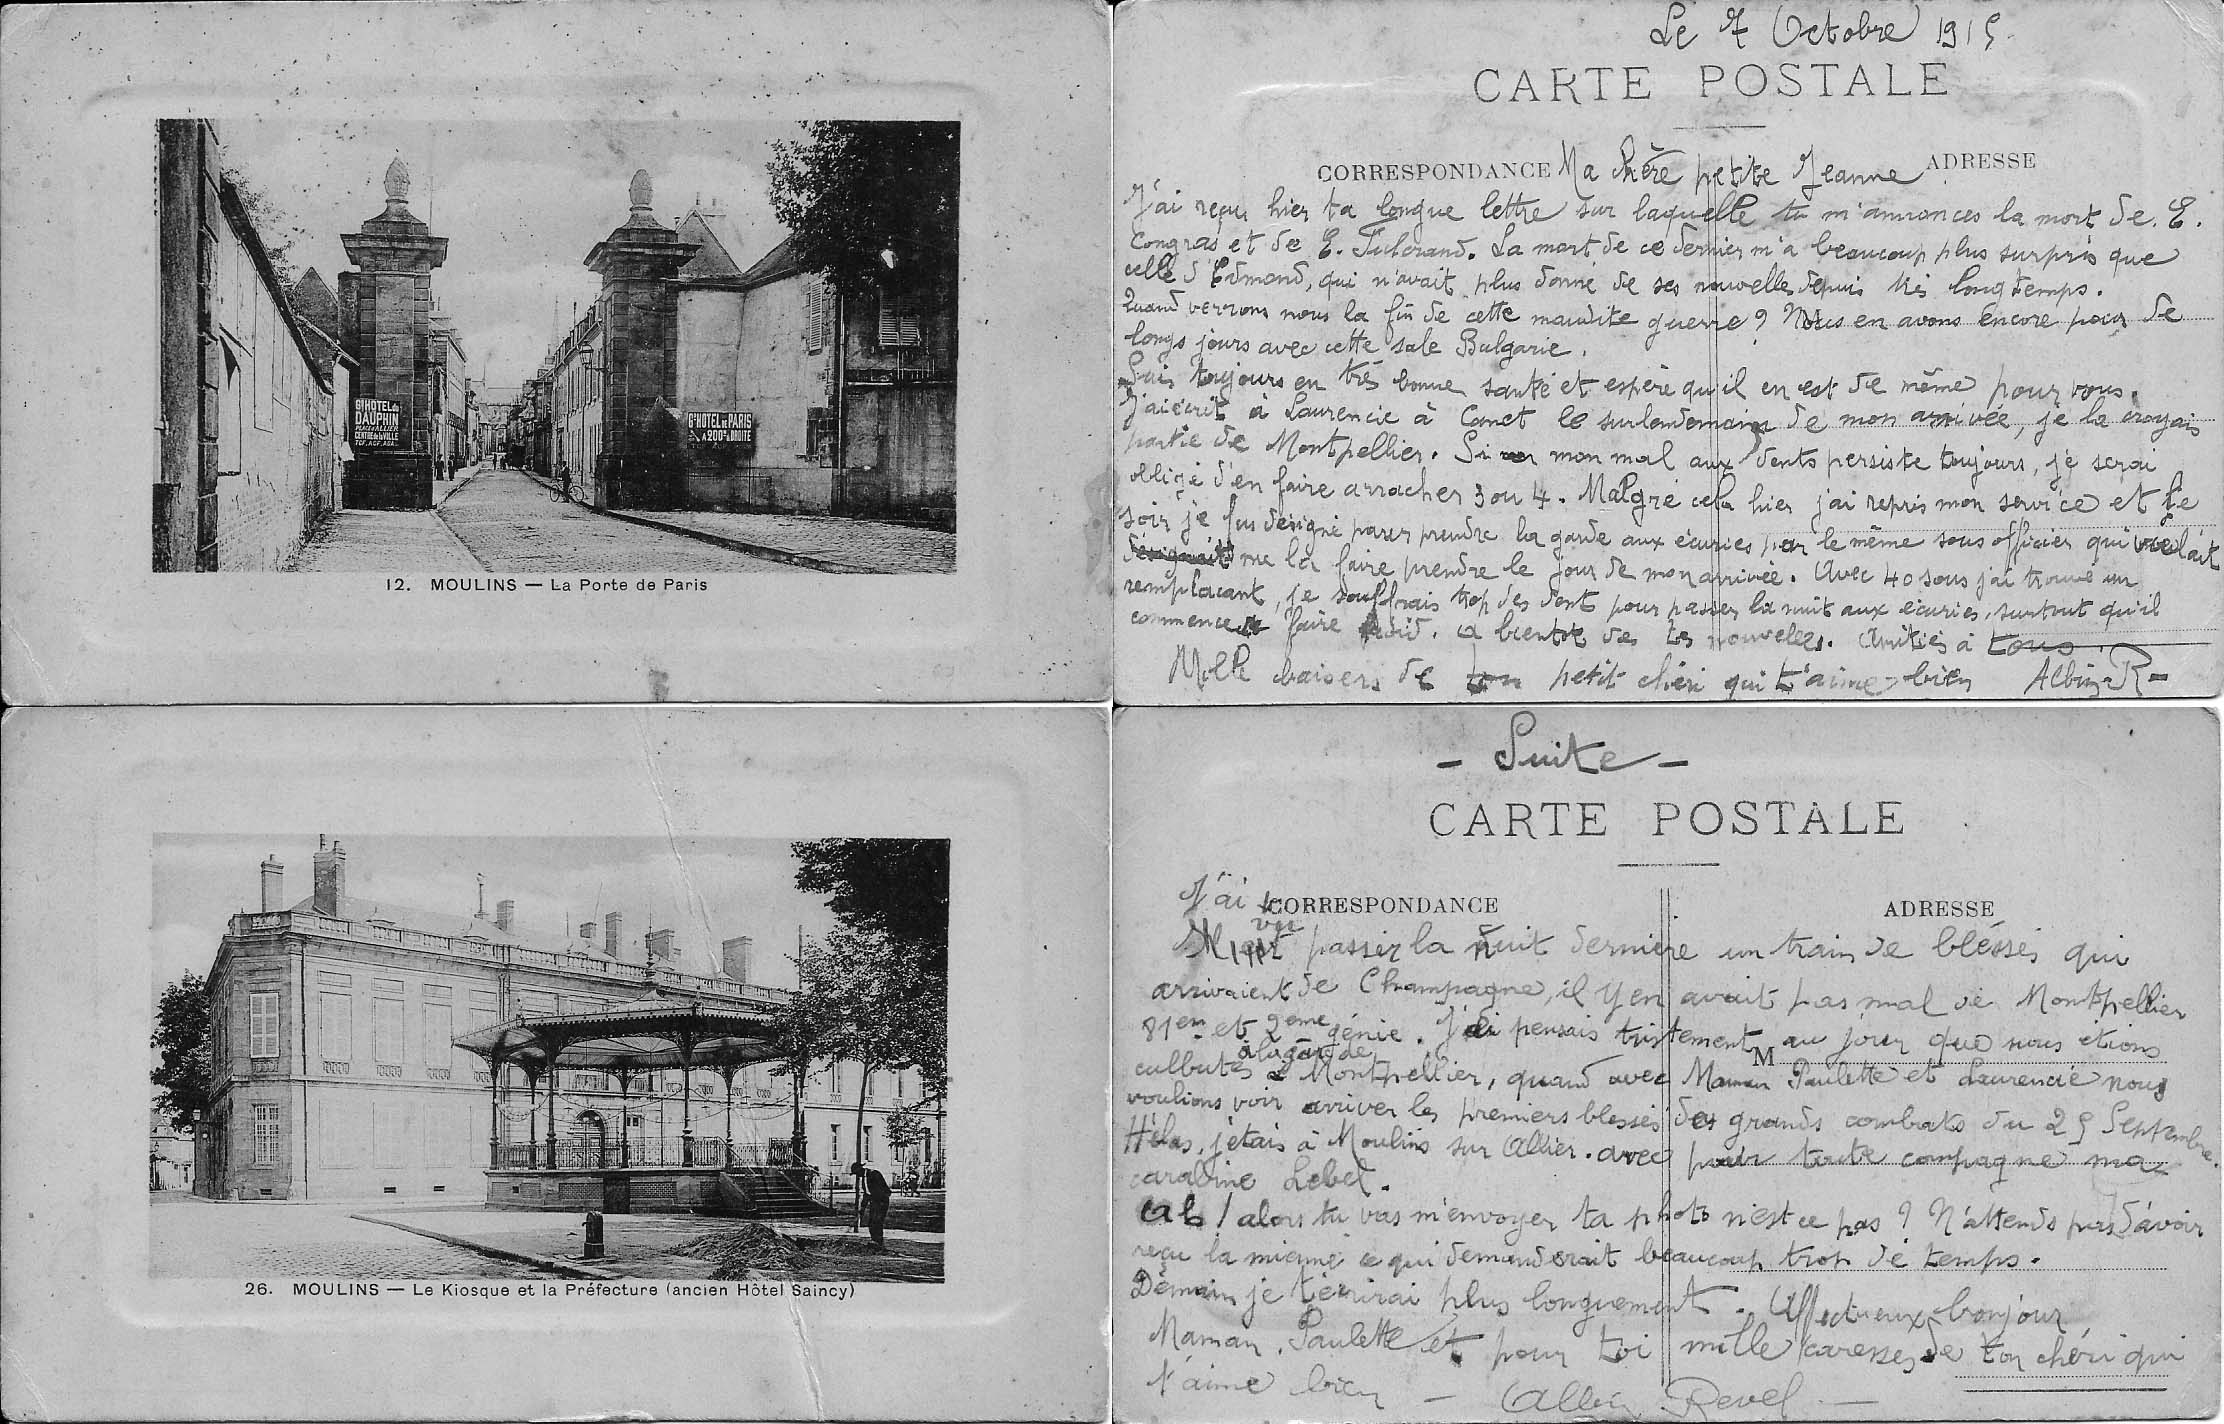 Gd HOTEL du
DAUPHIN
PLACE d'ALLIER
CENTRE de la VILLE
TCF, ACF, AGA
Gd HOTEL DE PARIS
A 200m A DROITE
12. MOULINS — La Porte de Paris
Le 7 Octobre 1915
CARTE POSTALE
CORRESPONDANCE Ma Chère petite Jeanne ADRESSE
J'ai reçu hier ta longue lettre sur laquelle tu m'annonces la mort de E.
Congras et de E. Fulcrand. La mort de ce dernier m'a beaucoup plus surpris que
celle d'Edmond, qui n'avait plus donné de ses nouvelles depuis très longtemps.
Quand verrons nous la fin de cette maudite guerre ? Nous en avons encore pour de
longs jours avec cette sale Bulgarie.
Suis toujours en très bonne santé et espère qu'il en est de même pour vous.
J'ai écrit à Laurencie à Canet le surlendemain de mon arrivée, je la croyais
partie de Montpellier. Si mon mal aux dents persiste toujours, je serai
obligé d'en faire arracher 3 ou 4. Malgré cela hier j'ai repris mon service et le
soir je fus désigné pour prendre la garde aux écuries par le même sous officier qui voulait
me la faire prendre le jour de mon arrivée. Avec 40 sous j'ai trouvé un
remplaçant, je souffrais trop des dent pour passer la nuit aux écuries, surtout qu'il
commence à faire froid. a bientôt de tes nouvelles. Amitiés à tous.
Mille baisers de ton petit chéri qui t'aime bien Albin R-
26. MOULINS — Le Kiosque et la Préfecture (ancien Hôtel Saincy)
- Suite -
CARTE POSTALE
CORRESPONDANCE ADRESSE
J'ai
vu
passer la nuit dernière un train de bléssés qui
arrivaient de Champagne, il y en avait pas mal de Montpellier
81em et 2eme génie. J'ai pensais tristement au jour que nous étions
culbutés à la gare de Montpellier, quand avec Maman Paulette et Laurencie nous
M
voulions voir arriver les premiers blessés des grands combats du 25 Septembre.
Hélas, j'étais à Moulins sur Allier. avec pour toute compagne ma
carabine Lebel.
Ah ! alors tu vas m'envoyer ta photo n'est ce pas ? N'attends pas d'avoir
reçu la mienne ce qui demanderait beaucoup trop de temps.
Demain je t'écrirai plus longuement. Affectueux bonjour
Maman, Paulette et pour toi mille caresses de ton chéri qui
t'aime bien - Albin Revel -